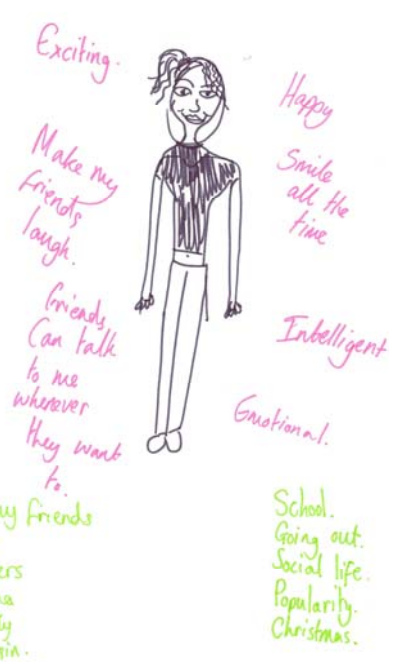 Exciting.
Make my
friends
laugh.
Friends
Can talk
to me
whenever
they want
to.
Happy
Smile
all the
time
Intelligent
Emotional.
my friends
School.
Going out.
Social life.
Popularity.
Christmas.